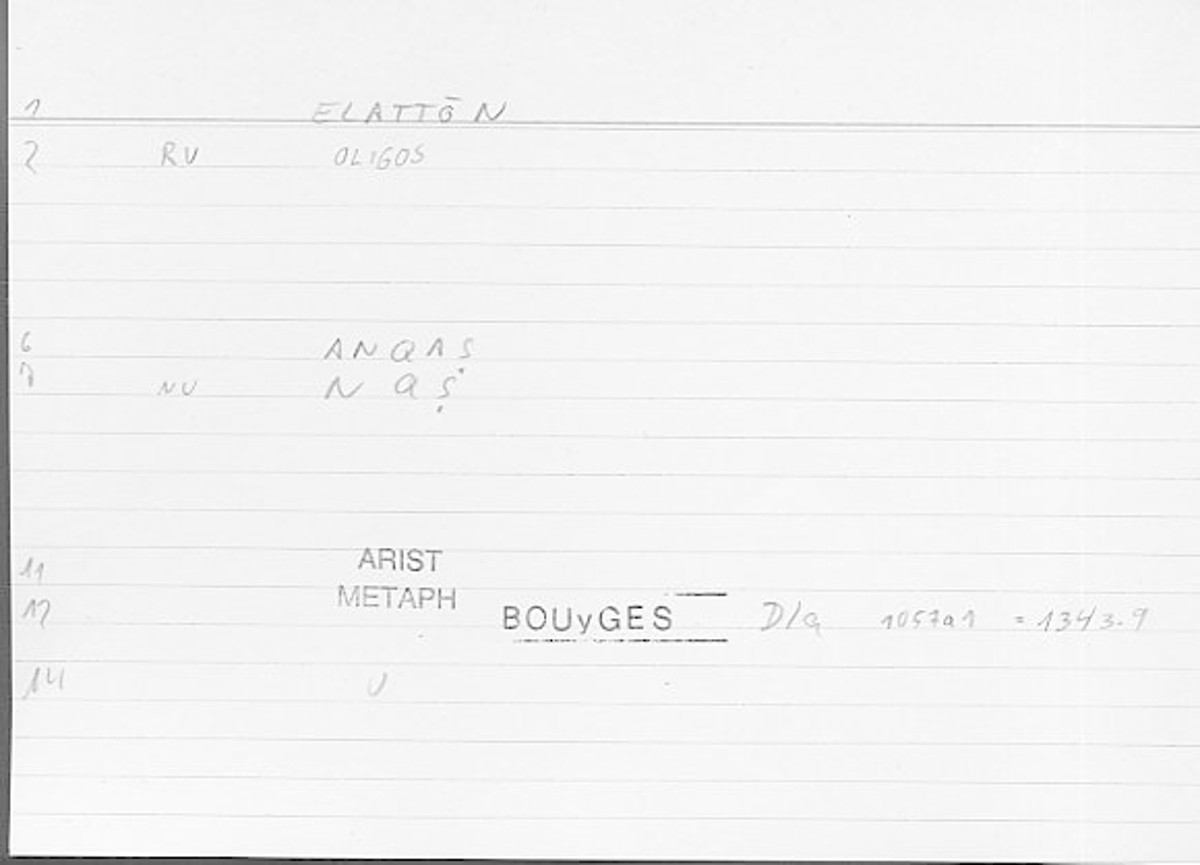 1 ELATTŌN
2 RU OLIGOS
6 ANQAṢ
7 NU NQṢ
11 ARIST
12 METAPH BOUyGES D/a 1057a1 = 1343.9
14 U